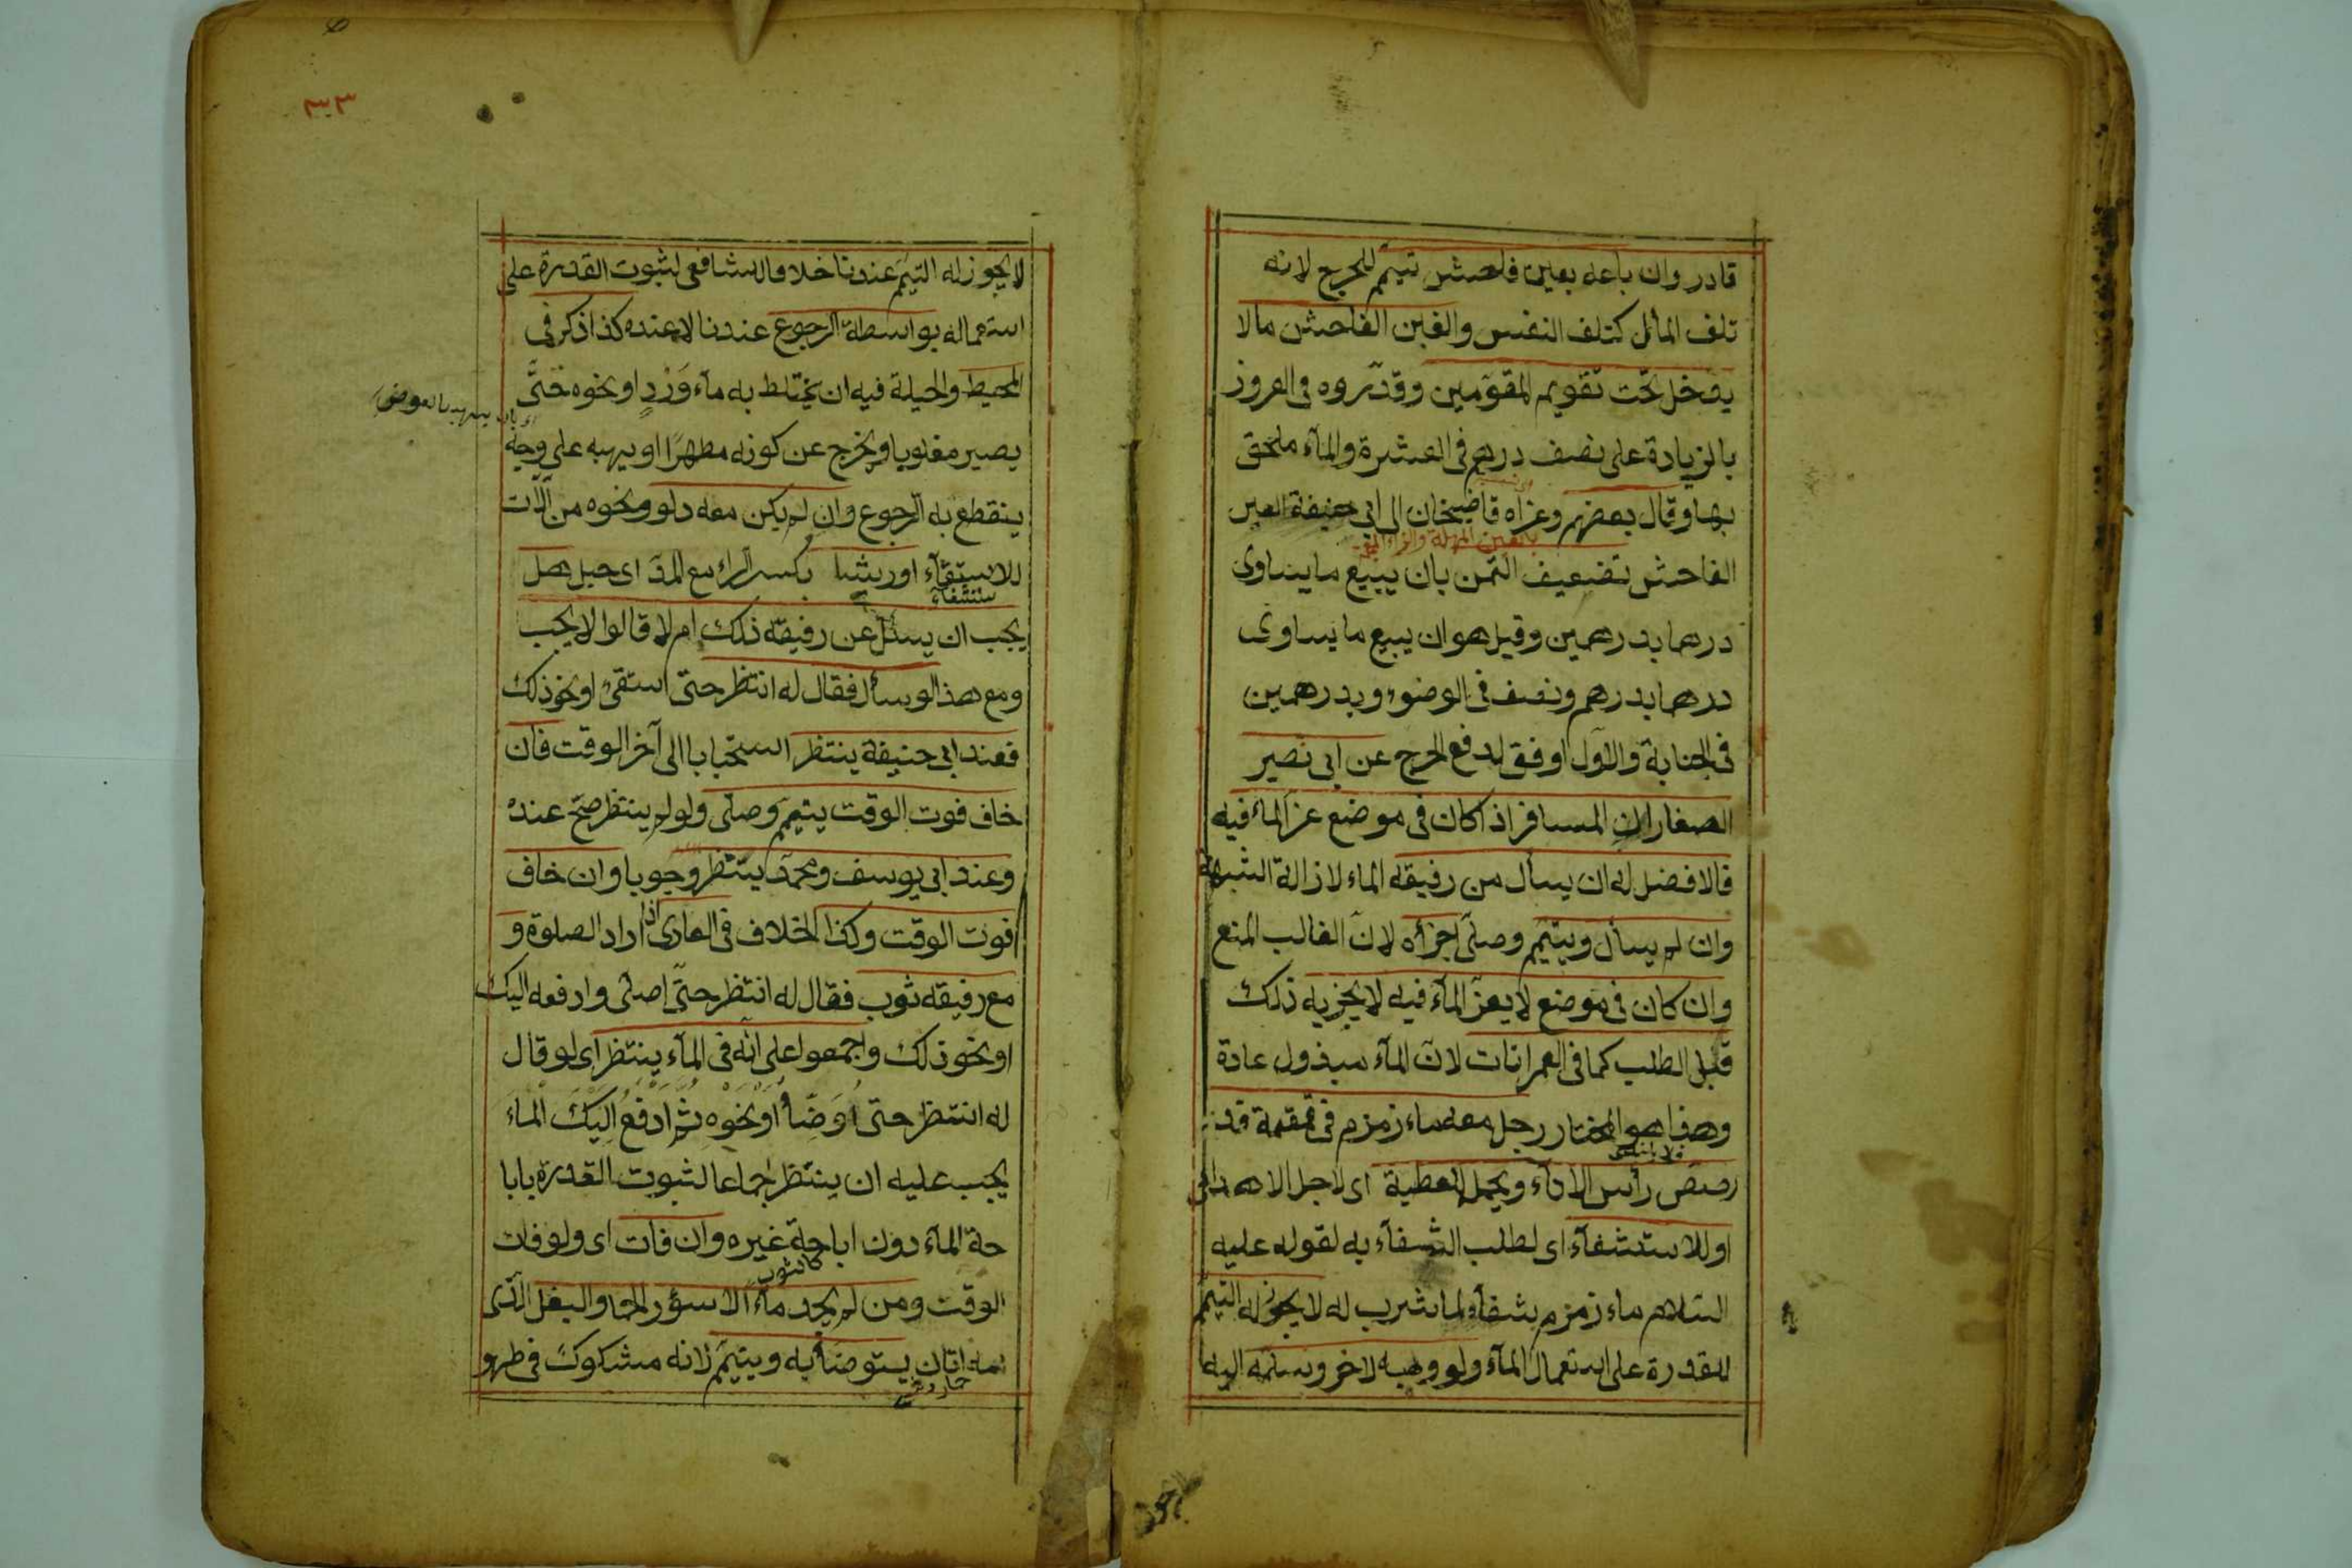 قادر وان باعه بغبن فاحش تيمّم للحرج لانه
تلف المال كتلف النفس والغبن الفاحش مالا
يدخل تحت تقويم المقوّمين وقدّروه فى العروز
بالزيادة على نصف درهم فى العشرة والمآء ملحق
بها وقال بعضهم وعزاه قاضيخان الى ابى حنيفة الغبن
بالعين المهملة والزاء المعجمة
الفاحش تضعيف الثمن بان يبيع ما يساوى
درهما بدرهمين وقيل هو ان يبيع ما يساوى
درهما بدرهم ونصف فى الوضوء وبدرهمين
فى الجنابة والاوّل اوفق لدفع الحرج عن ابى نصير
الصفار ان المسافر اذا كان فى موضع عز الماء فيه
فالافضل له ان يسأل من رفيقه الماء لازالة الشبهة
وان لم يسأل ويتيمّم وصلّى اجزأه لانّ الغالب المنع
وان كان فى موضع لا يعزّ المآء فيه لا يجزيه ذلك
قبل الطلب كما فى العمرانات لانّ المآء مبذول عادة
وهذا هو المختار رجل معه ماء زمزم فى قمقمة قد
رصص رأس الاناء ويحمل للعطية اى لاجل الاهداء
او للاستشفآء اى لطلب الشفآء به لقوله عليه
السلام ماء زمزم شفآء لما شرب له لا يجوز له التيمّم
للقدرة على استعمال المآء ولو وهبه لاخر وسلّمه اليه
٣٣
لا يجوز له التيمّم عندنا خلافا للشافعى لثبوت القدرة على
استعماله بواسطة الرجوع عندنا لا عنده كذا ذكر فى
المحيط والحيلة فيه ان يختلط به مآء وَرْدٍ او نحوه حَتَّى
يصير مغلوبا ويخرج عن كونه مطهّرًا او يهبه على وجه
ينقطع به الرجوع وان لم يكن معه دلو ونحوه من آلات
للاستقآء او رشا بكسر الراء مع المدّ اى حبل هل
يجب ان يسئل عن رفيقه ذلك ام لا قالوا لا يجب
ومع هذا لو سأل فقال له انتظر حتّى استقى او نحو ذلك
فعند ابى حنيفة ينتظر استحبابا الى آخر الوقت فان
خاف فوت الوقت يتيمّم وصلّى ولو لم ينتظر صحّ عنده
وعند ابى يوسف ومحمّد ينتظر وجوبا وان خاف
فوت الوقت وكذا الخلاف فى العارى اذا اراد الصلوة و
مع رفيقه ثوب فقال له انتظر حتّى اصلّى وادفعه اليك
او نحو ذلك واجمعوا على انّه فى المآء ينتظر اى لو قال
له انتظر حتى اُوَضّأ أو نحوه ثم ادفعُ اليكَ الماء
يجب عليه ان ينتظر اجماعا لثبوت القدرة بابا
حة المآء دون اباحة غيره وان فات اى ولو فات
كالثوب
الوقت ومن لم يجد مآء الا سؤر الحمار والبغل الّذى
امه اتان يتوضأ به ويتيمّم لانه مشكوك فى طهو